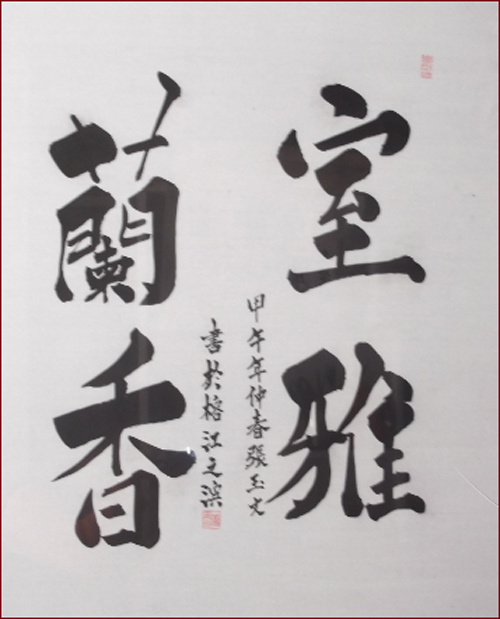 室雅
蘭香
甲午年仲春張玉文
書於榕江之滨